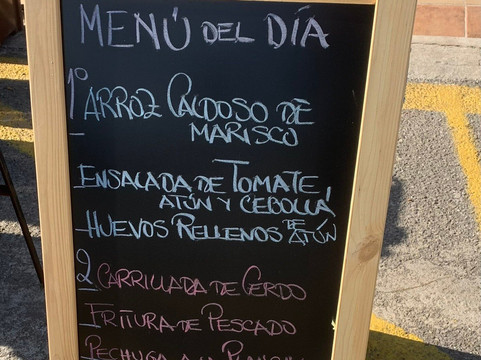 MENÚ DEL DÍA
1º ARROZ CALDOSO DE
MARISCO
ENSALADA DE TOMATE,
ATÚN Y CEBOLLA
HUEVOS RELLENOS DE ATÚN
2 CARRILLADA DE CERDO
FRITURA DE PESCADO
PECHUGA A LA PLANCHA